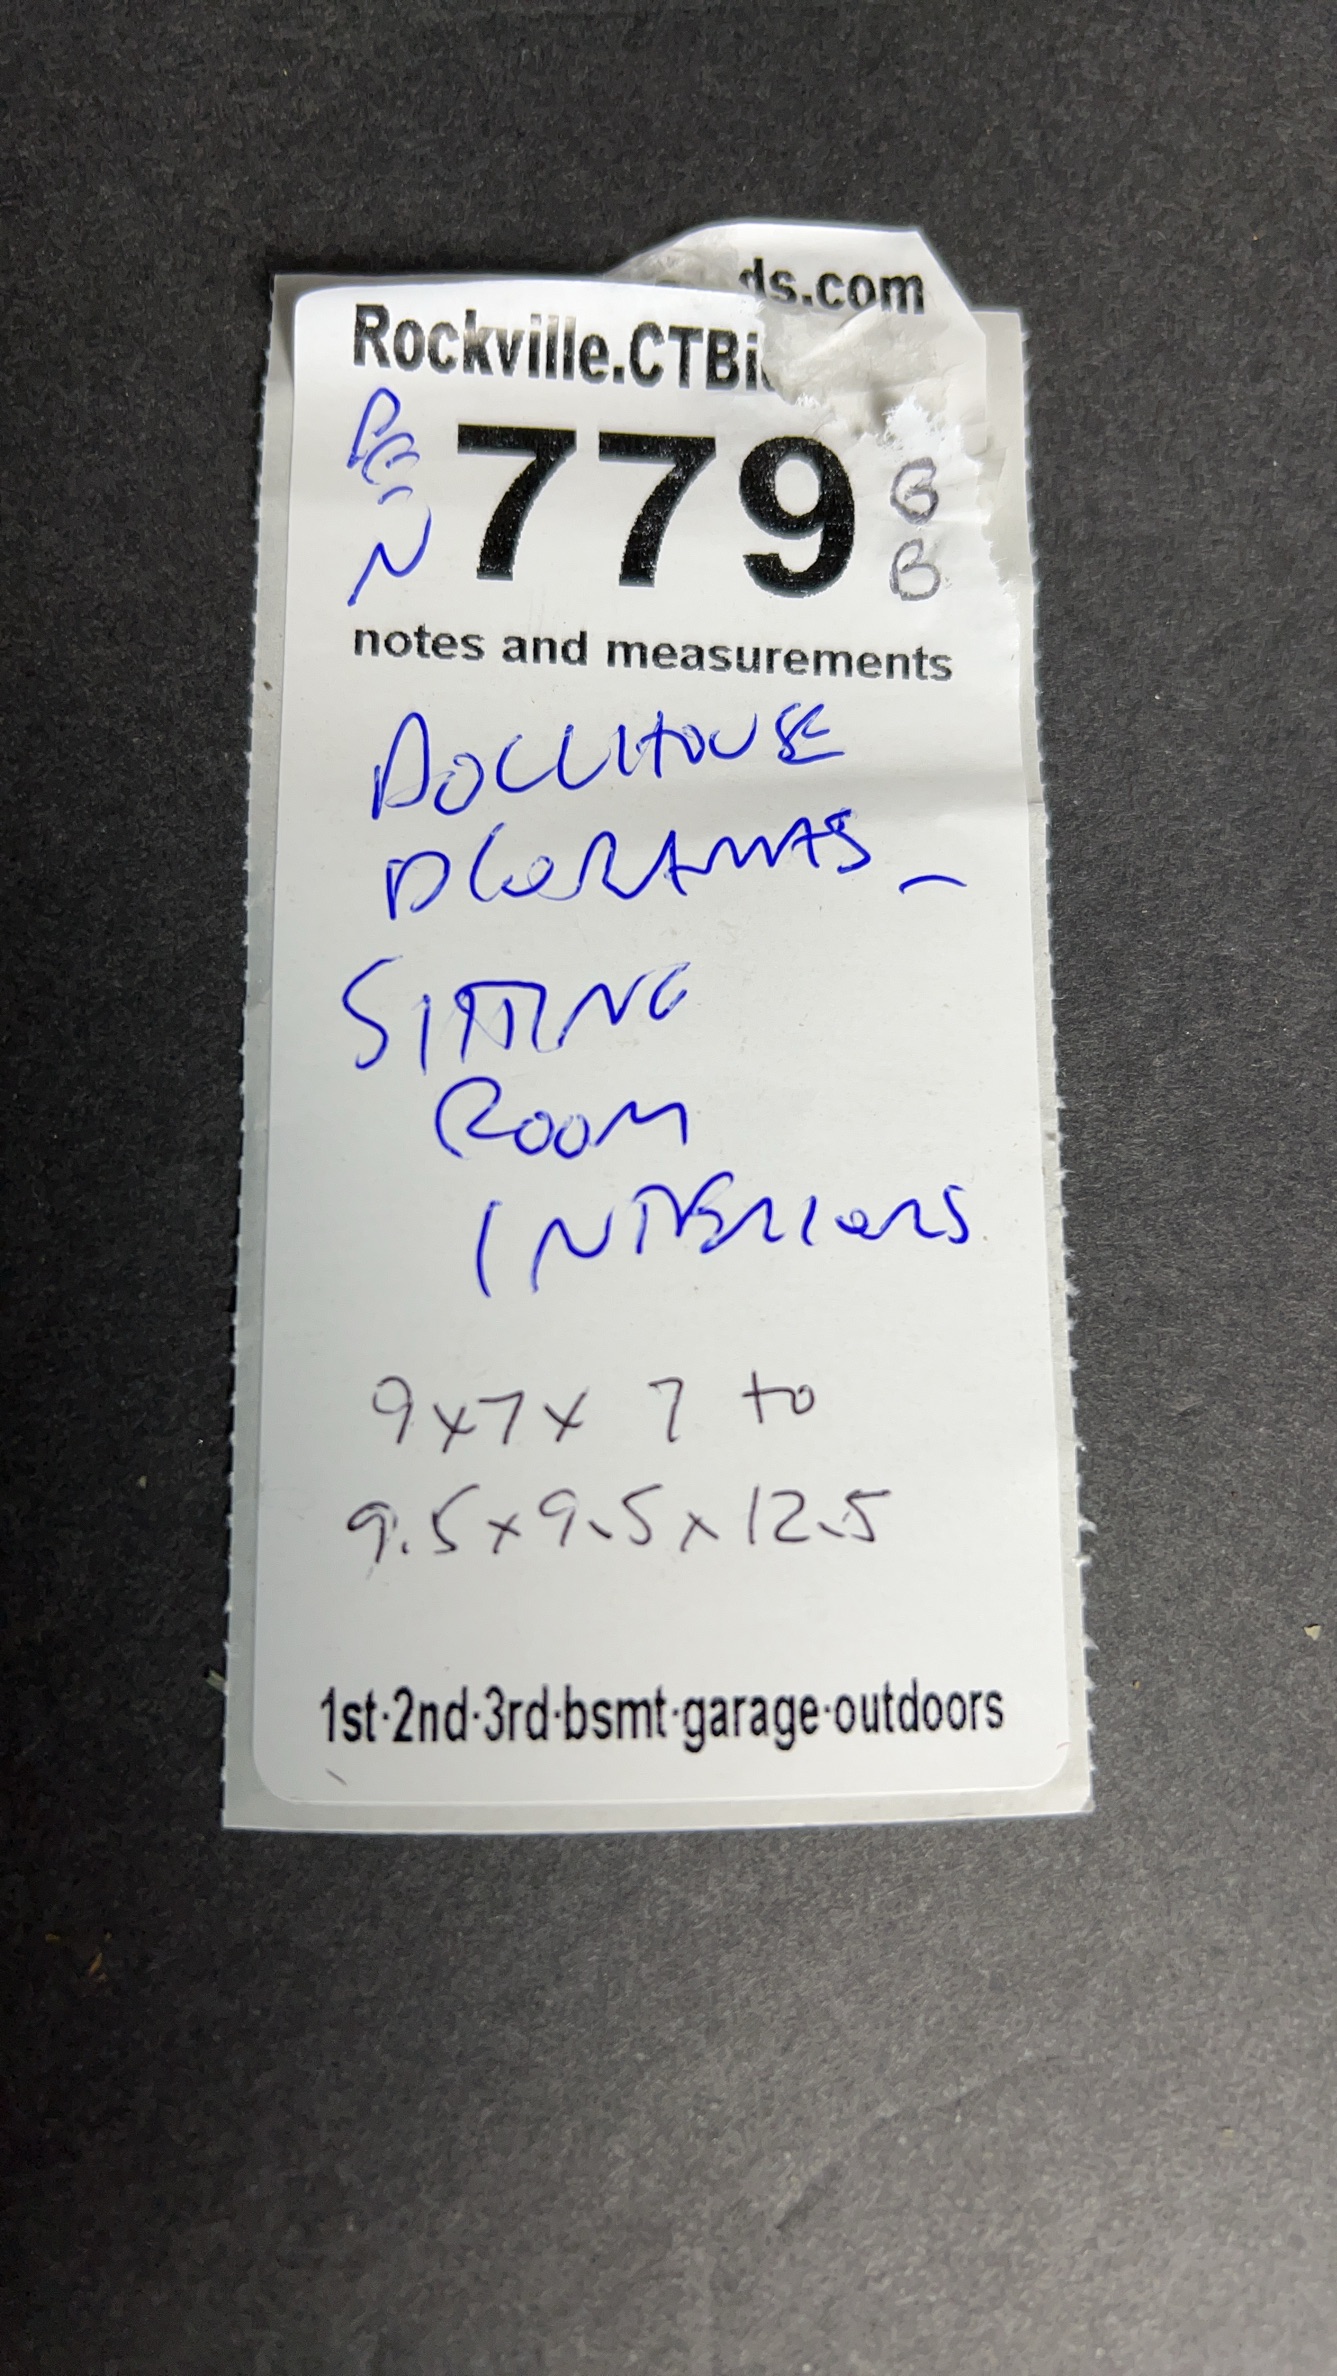 ds.com
Rockville.CTBi
779
B
B
notes and measurements
DOLLHOUSE
DIORAMAS -
SITTING
ROOM
INTERIORS
9x7x 7 to
9.5x9.5x12.5
1st·2nd·3rd·bsmt·garage·outdoors